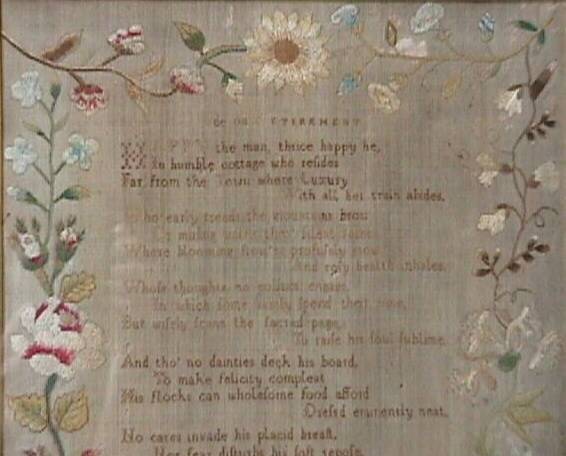 HAPPY the man, thrice happy he,
In humble cottage who resides
Far from the Town where Luxury
With all her train abides.
Who early treads the mountains brow
Or
Whose blooming profusely grow
And rosy health inhales.
Whose thoughts no
In which some spend their time,
But wisely scans the sacred page,
To raise his soul sublime.
And tho' no dainties deck his board,
To make felicity compleat
His flocks can wholesome food afford
Dressed eminently neat.
No cares invade his placid breast,
Nor fear disturbs his soft repose